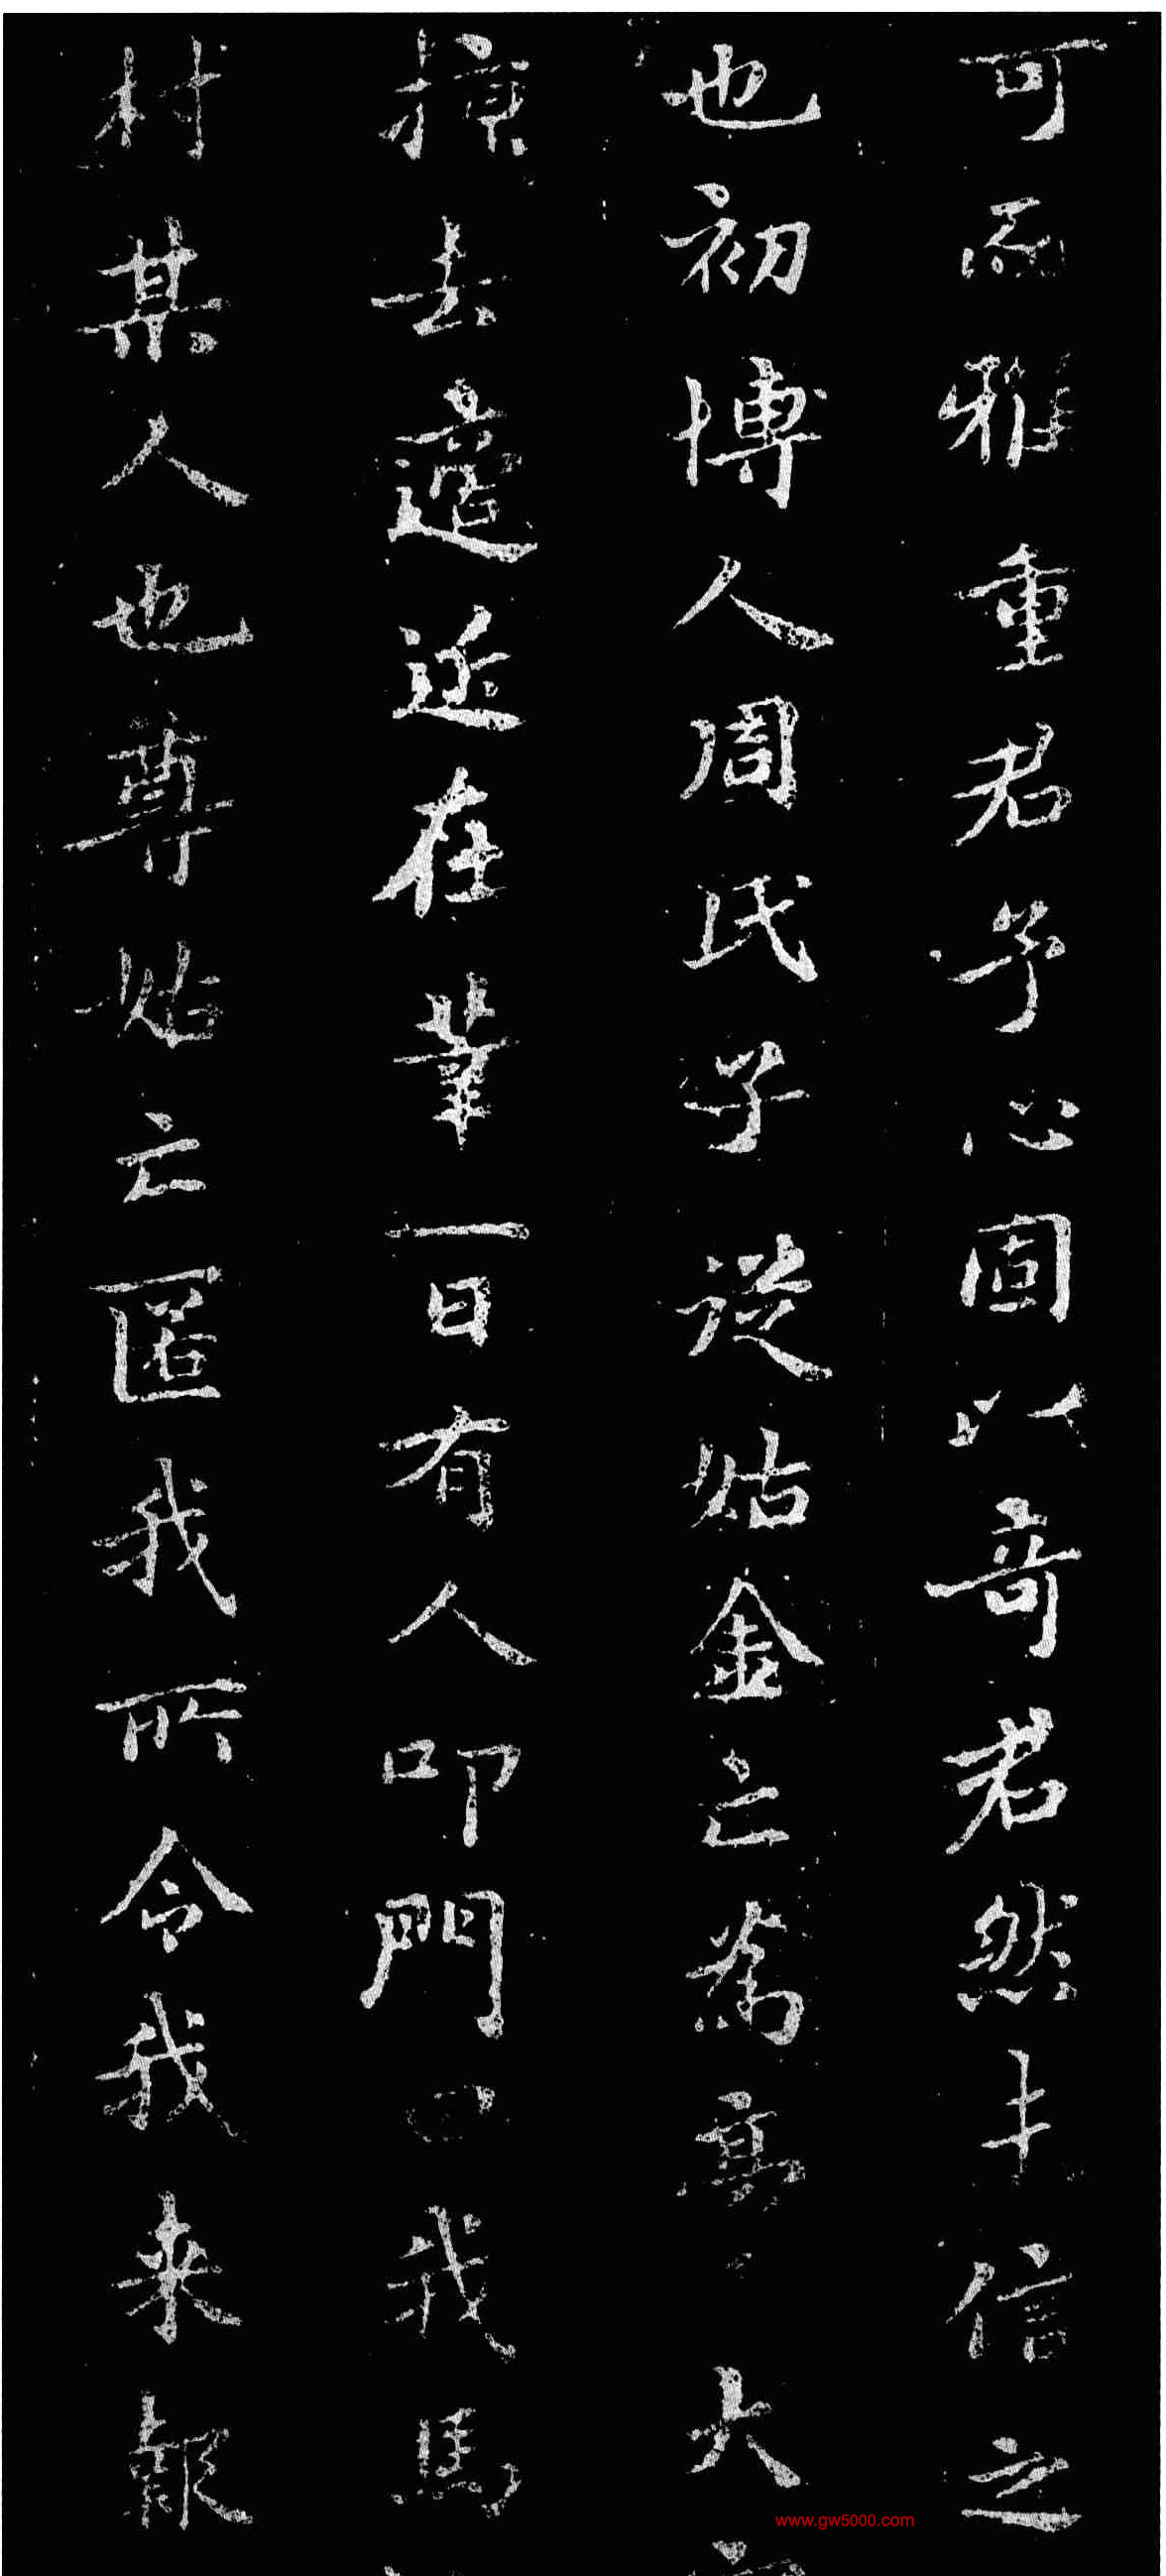 可而雅重君子心固以奇君然才信之
也初博人周氏子從姑金亡為高大
掠去邊送在輦一日有人叩門曰我馬
村某人也尊姑亡匿我所令我來報
www.gw5000.com